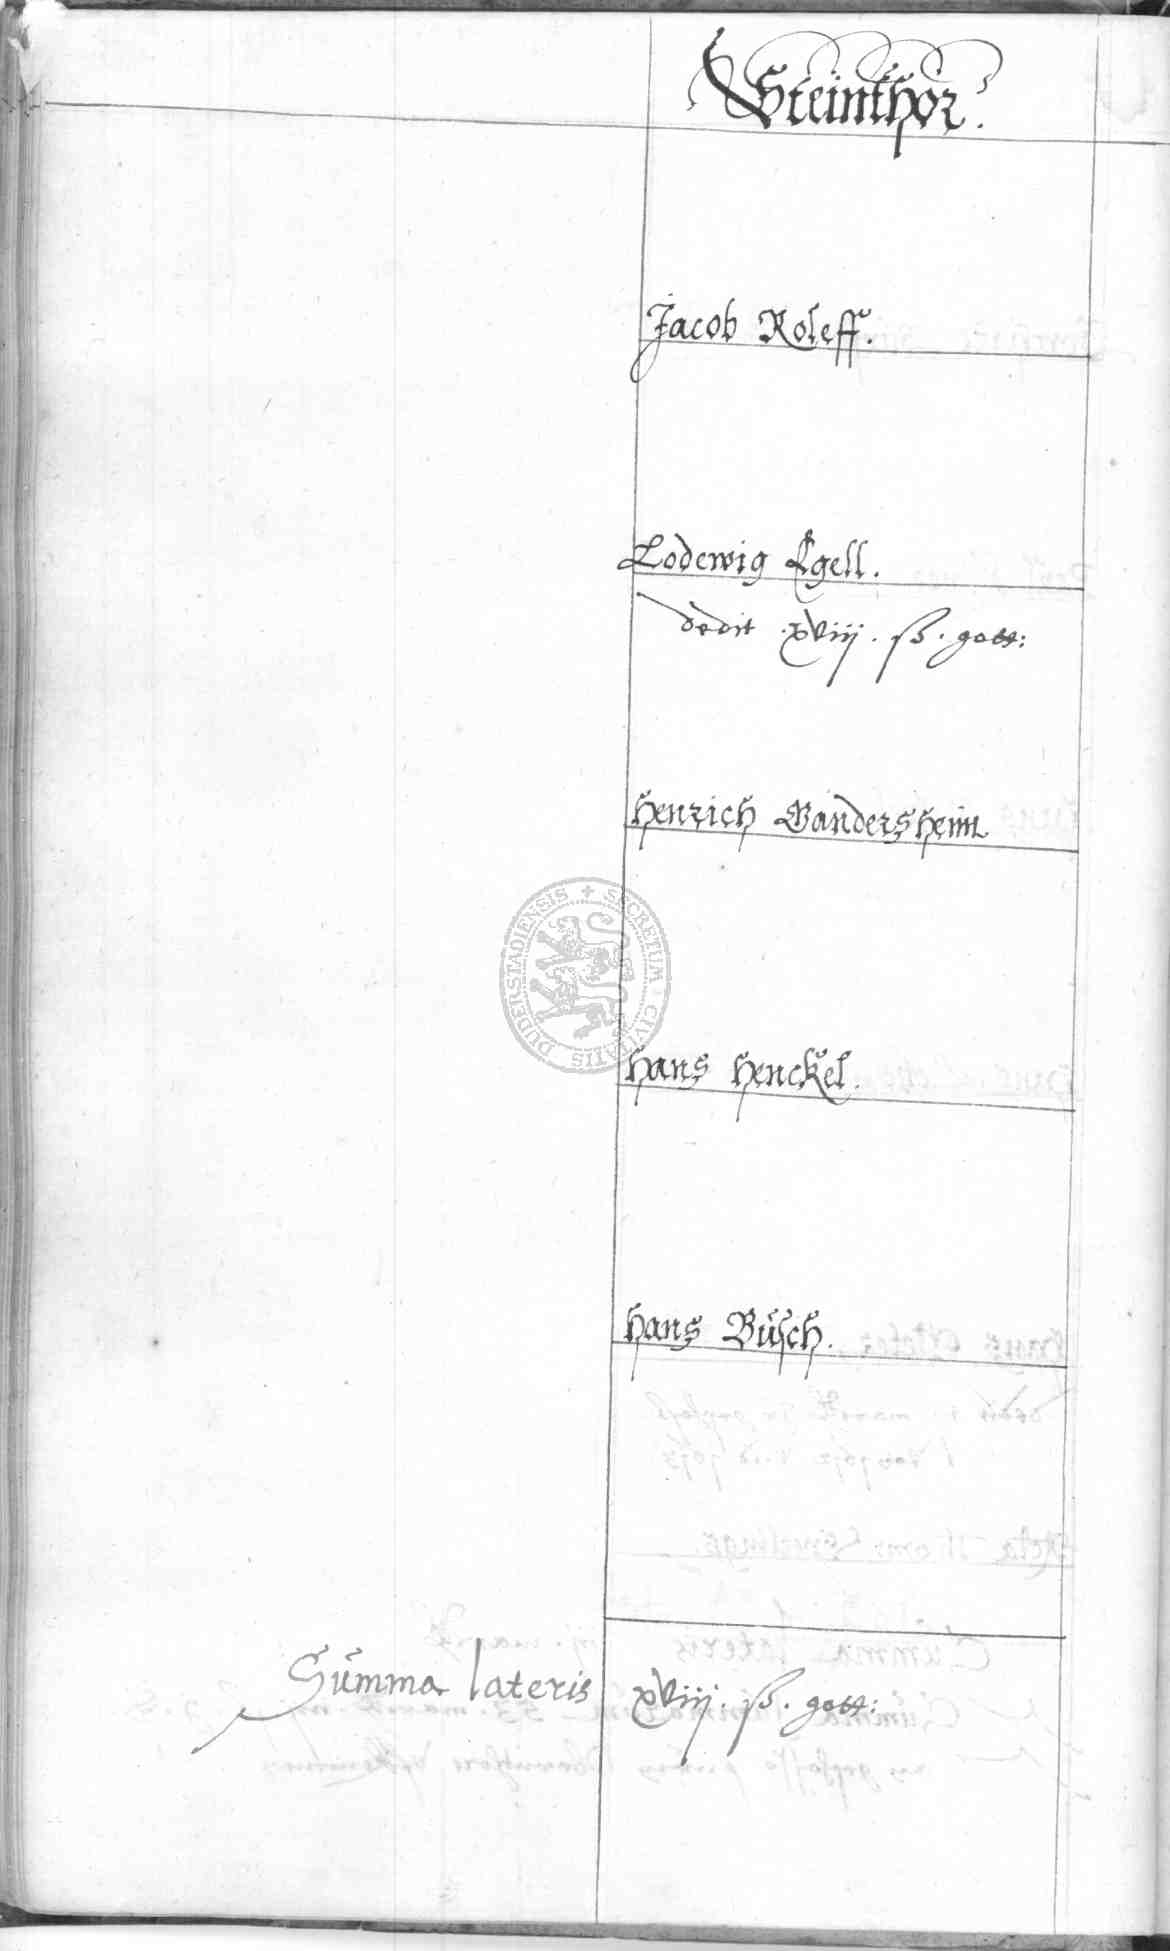 Steinthor.
Jacob Roleff.
Lodewig Egell.
dedit .xviij. ß. gott:
Henrich Gandersheim
SECRETUM CIVITATIS DUDERSTADIENSIS
Hans Henckel.
Hans Büsch.
Summa lateris xviij. ß. gott: